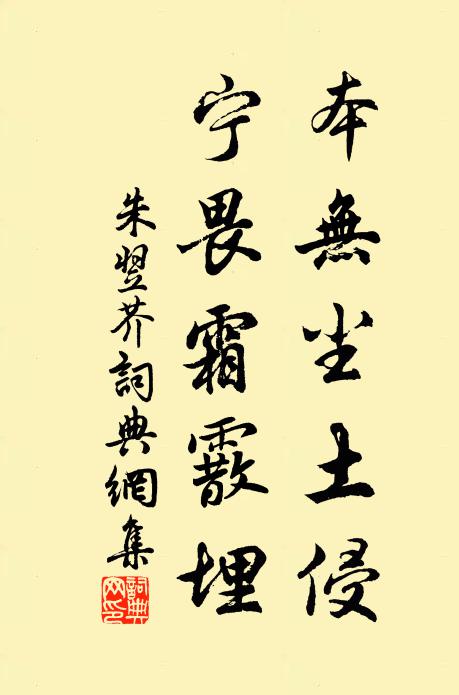 本無尘土侵
宁畏霜霰埋
朱翌芥詞典網集
詞典网印